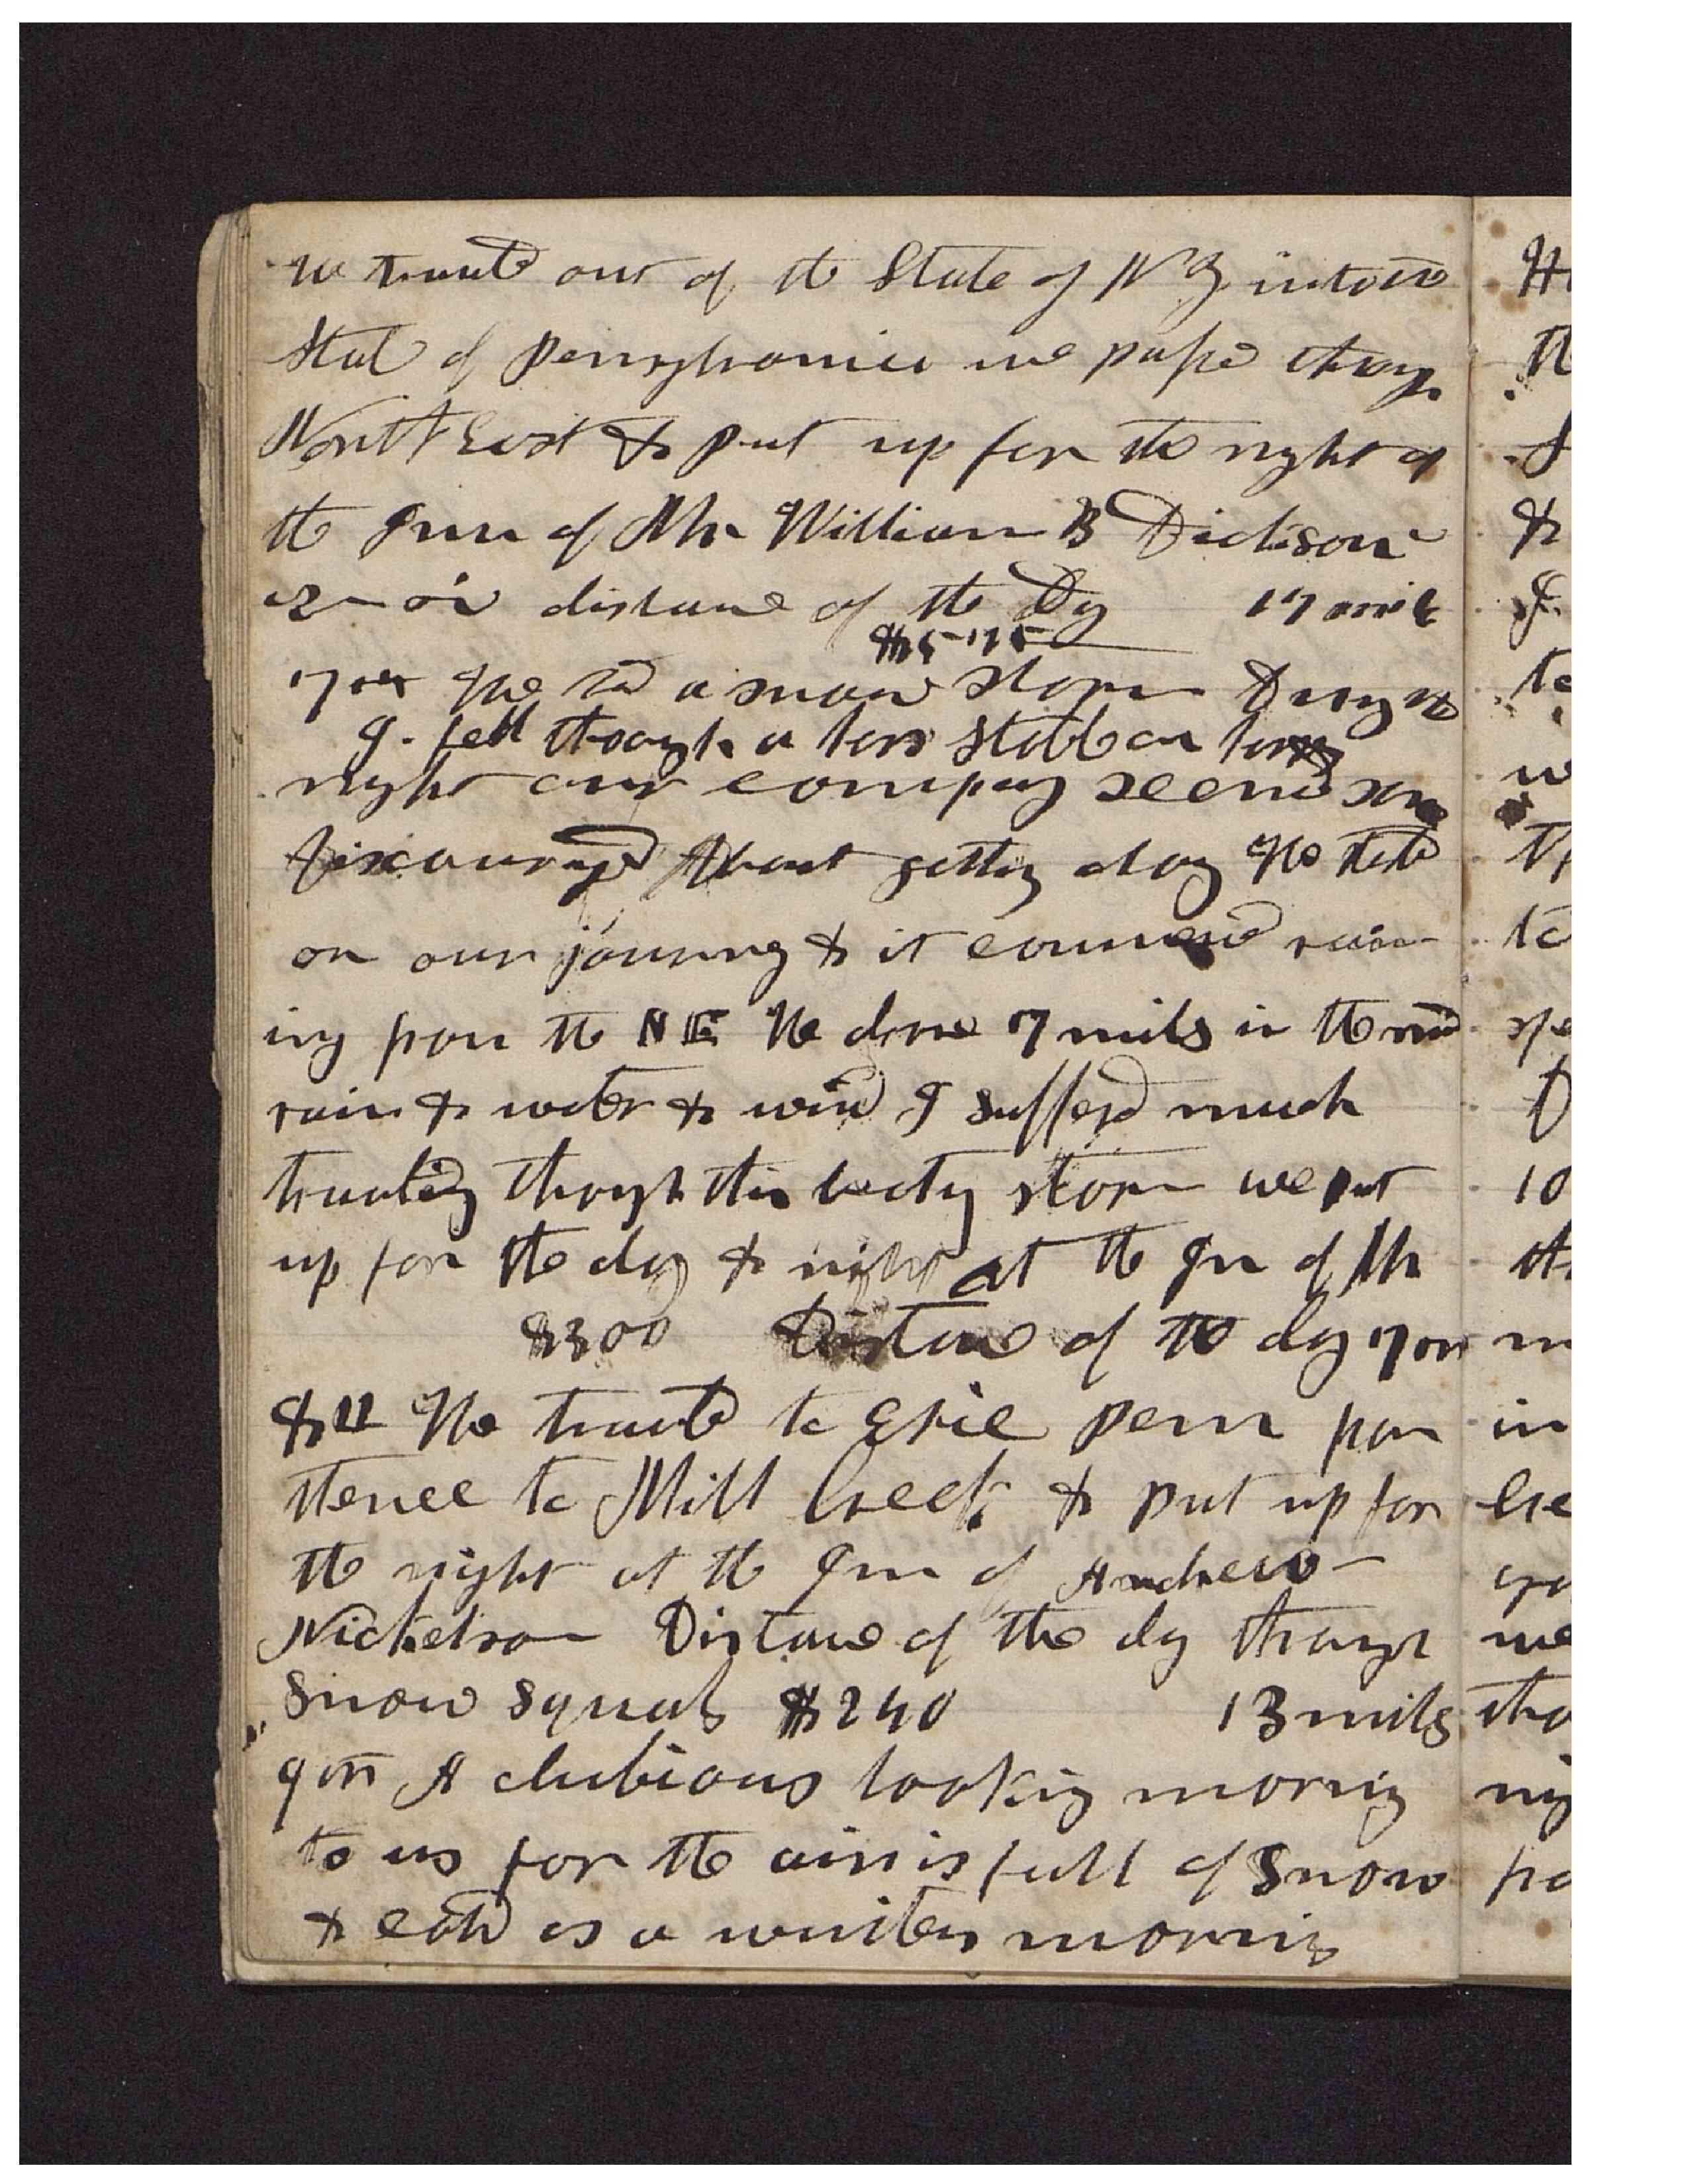 we traveld out of the State of N Y into the
State of Pensylvania we passd through
North East & put up for the night at
the Inn of Mr William B Dickson
distance of the Day 17 mils
$5-175
7 We had a snow storm During the
I fell through a barn
night our company seemd some
discouraged About getting along We
on our journey & it commencd rain
ing from the NE We drove 7 mils in the mud
rain & water & wind I sufferd much
traveling through this storm we put
up for the day & night at the Inn of Mr
$300 Distance of the day 7
We traveld to Erie Penn from
thence to Mill Creek & put up for
the night at the Inn of Andrew
Nickelson Distance of the day through
Snow squals $240 13 mils
9 A dubious looking morning
to us for the air is full of Snow
& cold as a winters morning